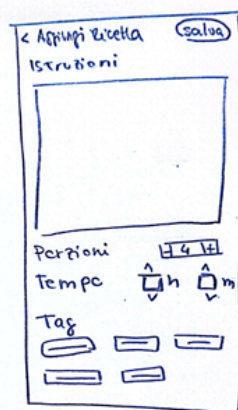 < Aggiungi Ricetta salva
Istruzioni
Porzioni - 4 +
Tempo h m
Tag